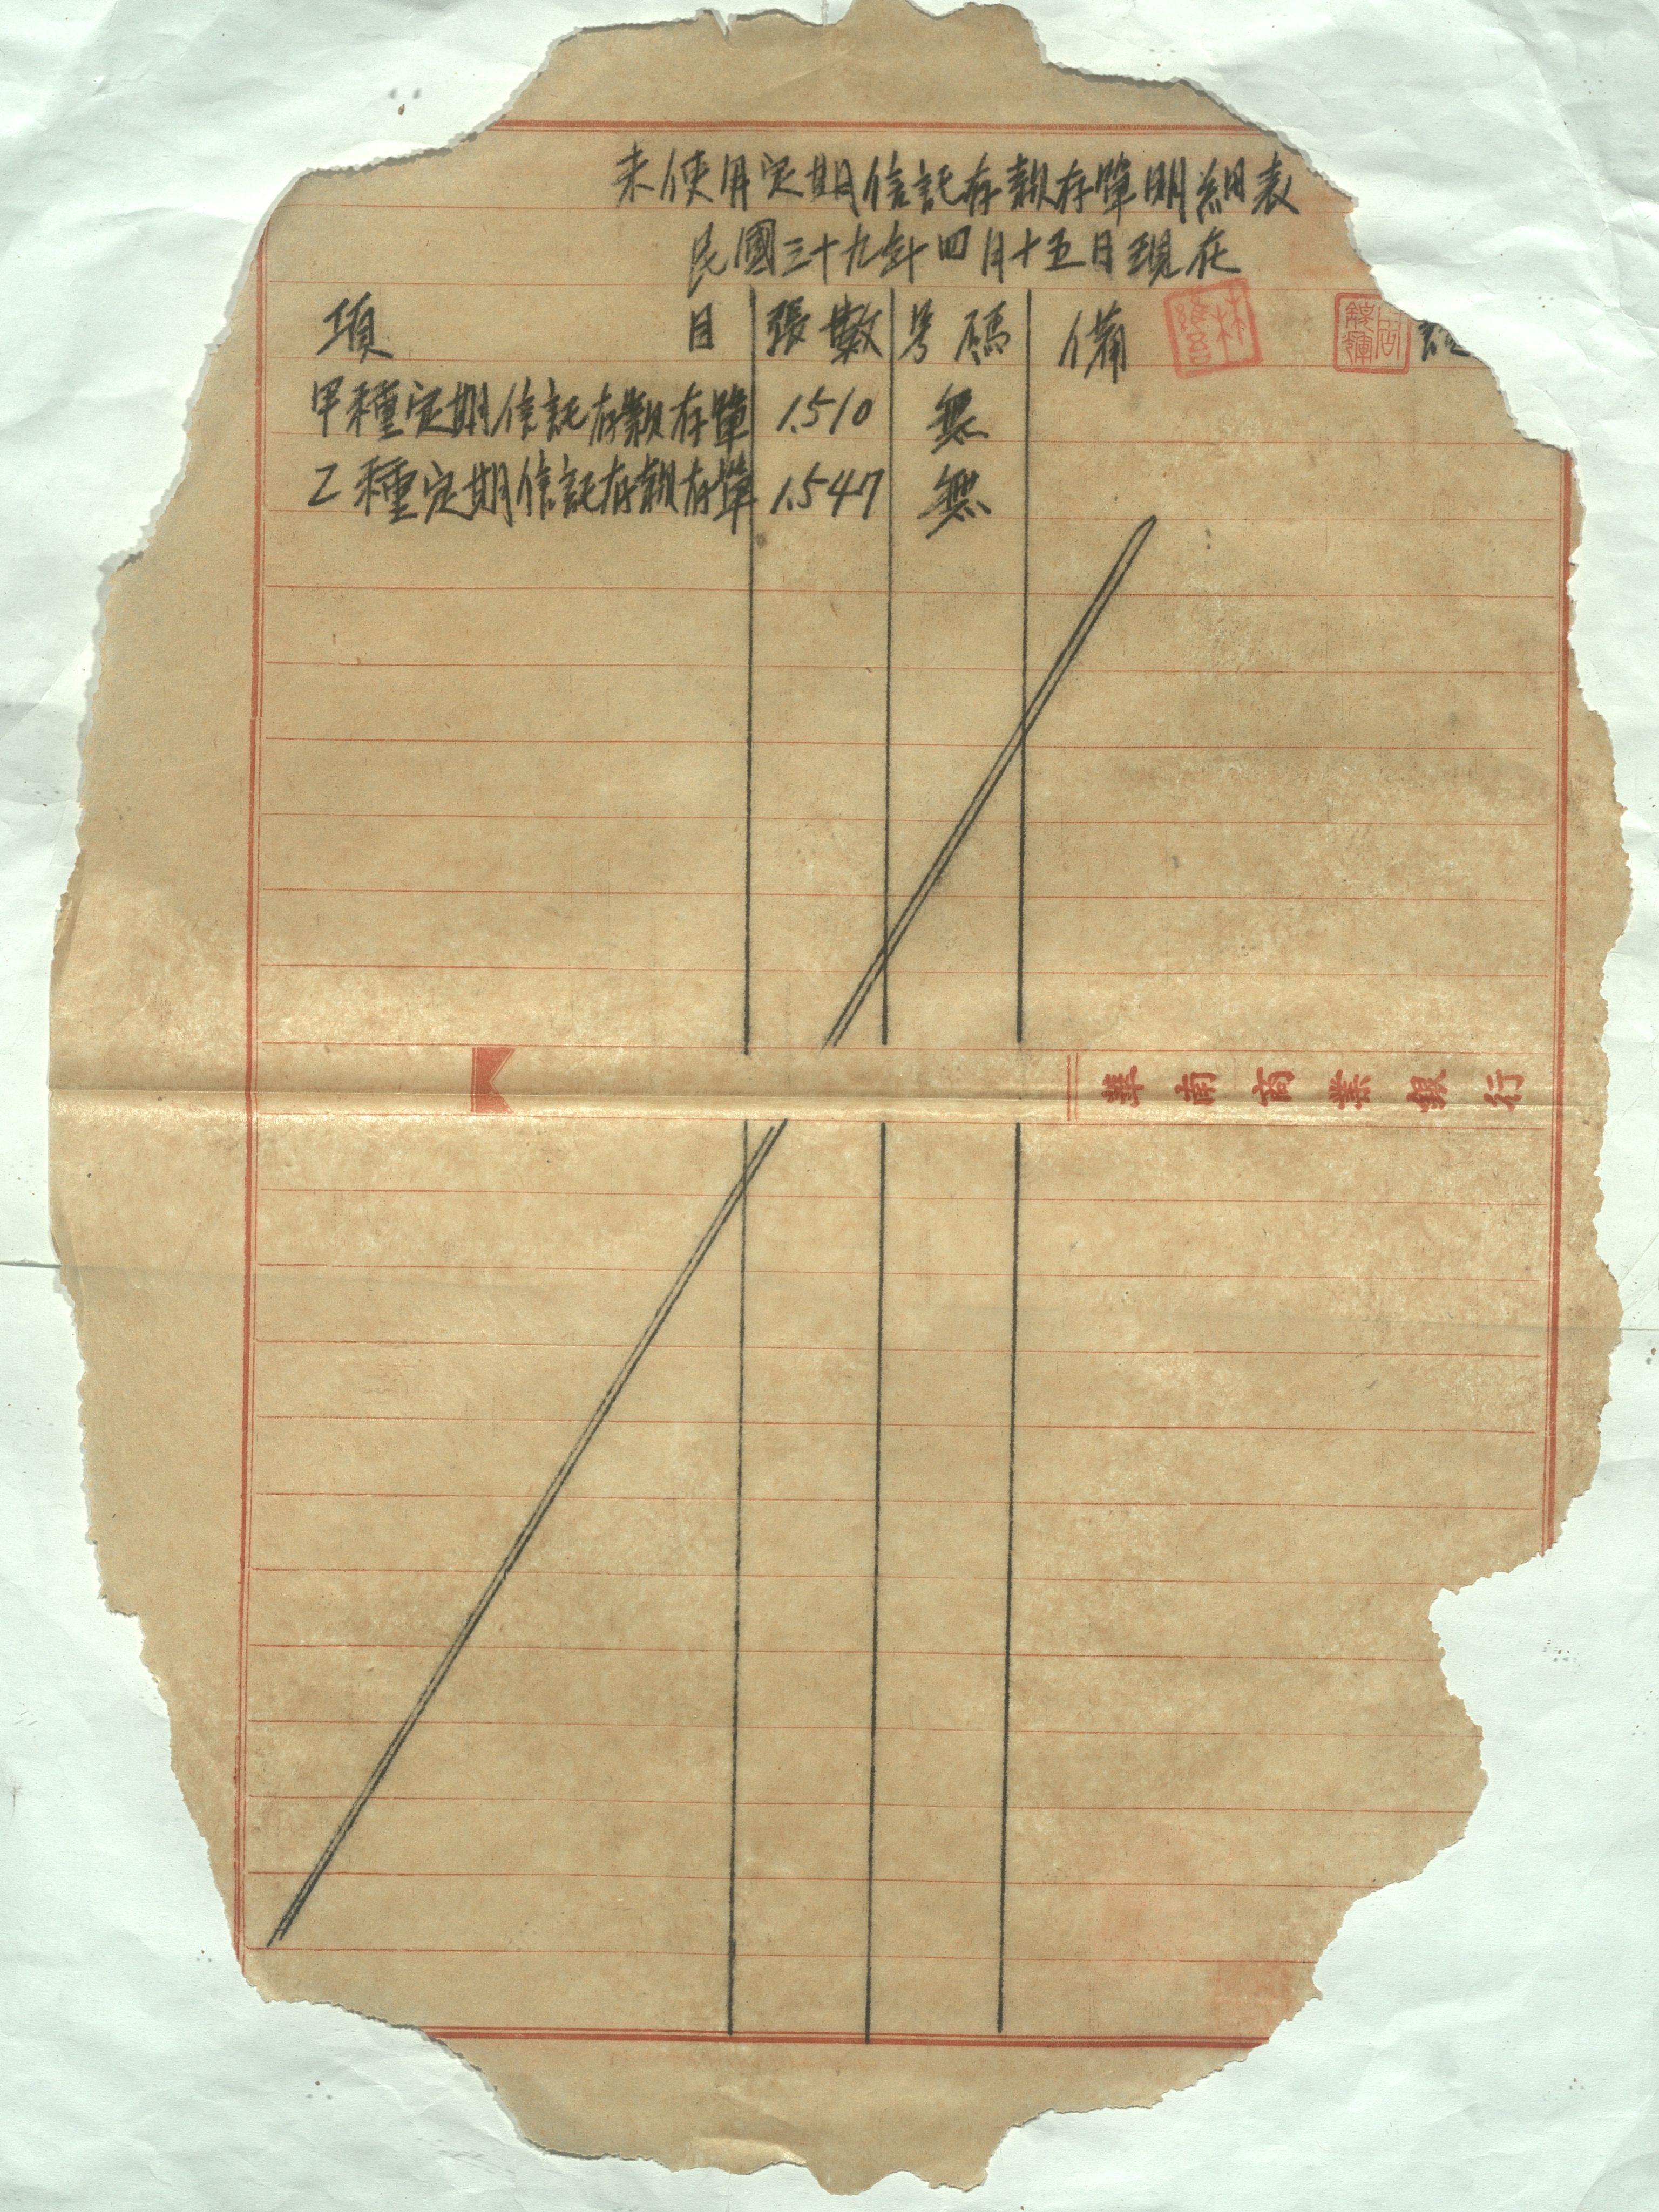 未使用定期信託存款存單明細表
民國三十九年四月十五日現在
項目 張數 号碼 備 註
甲種定期信託存款存單 1.510 無
乙種定期信託存款存單 1.547 無
華南商業銀行